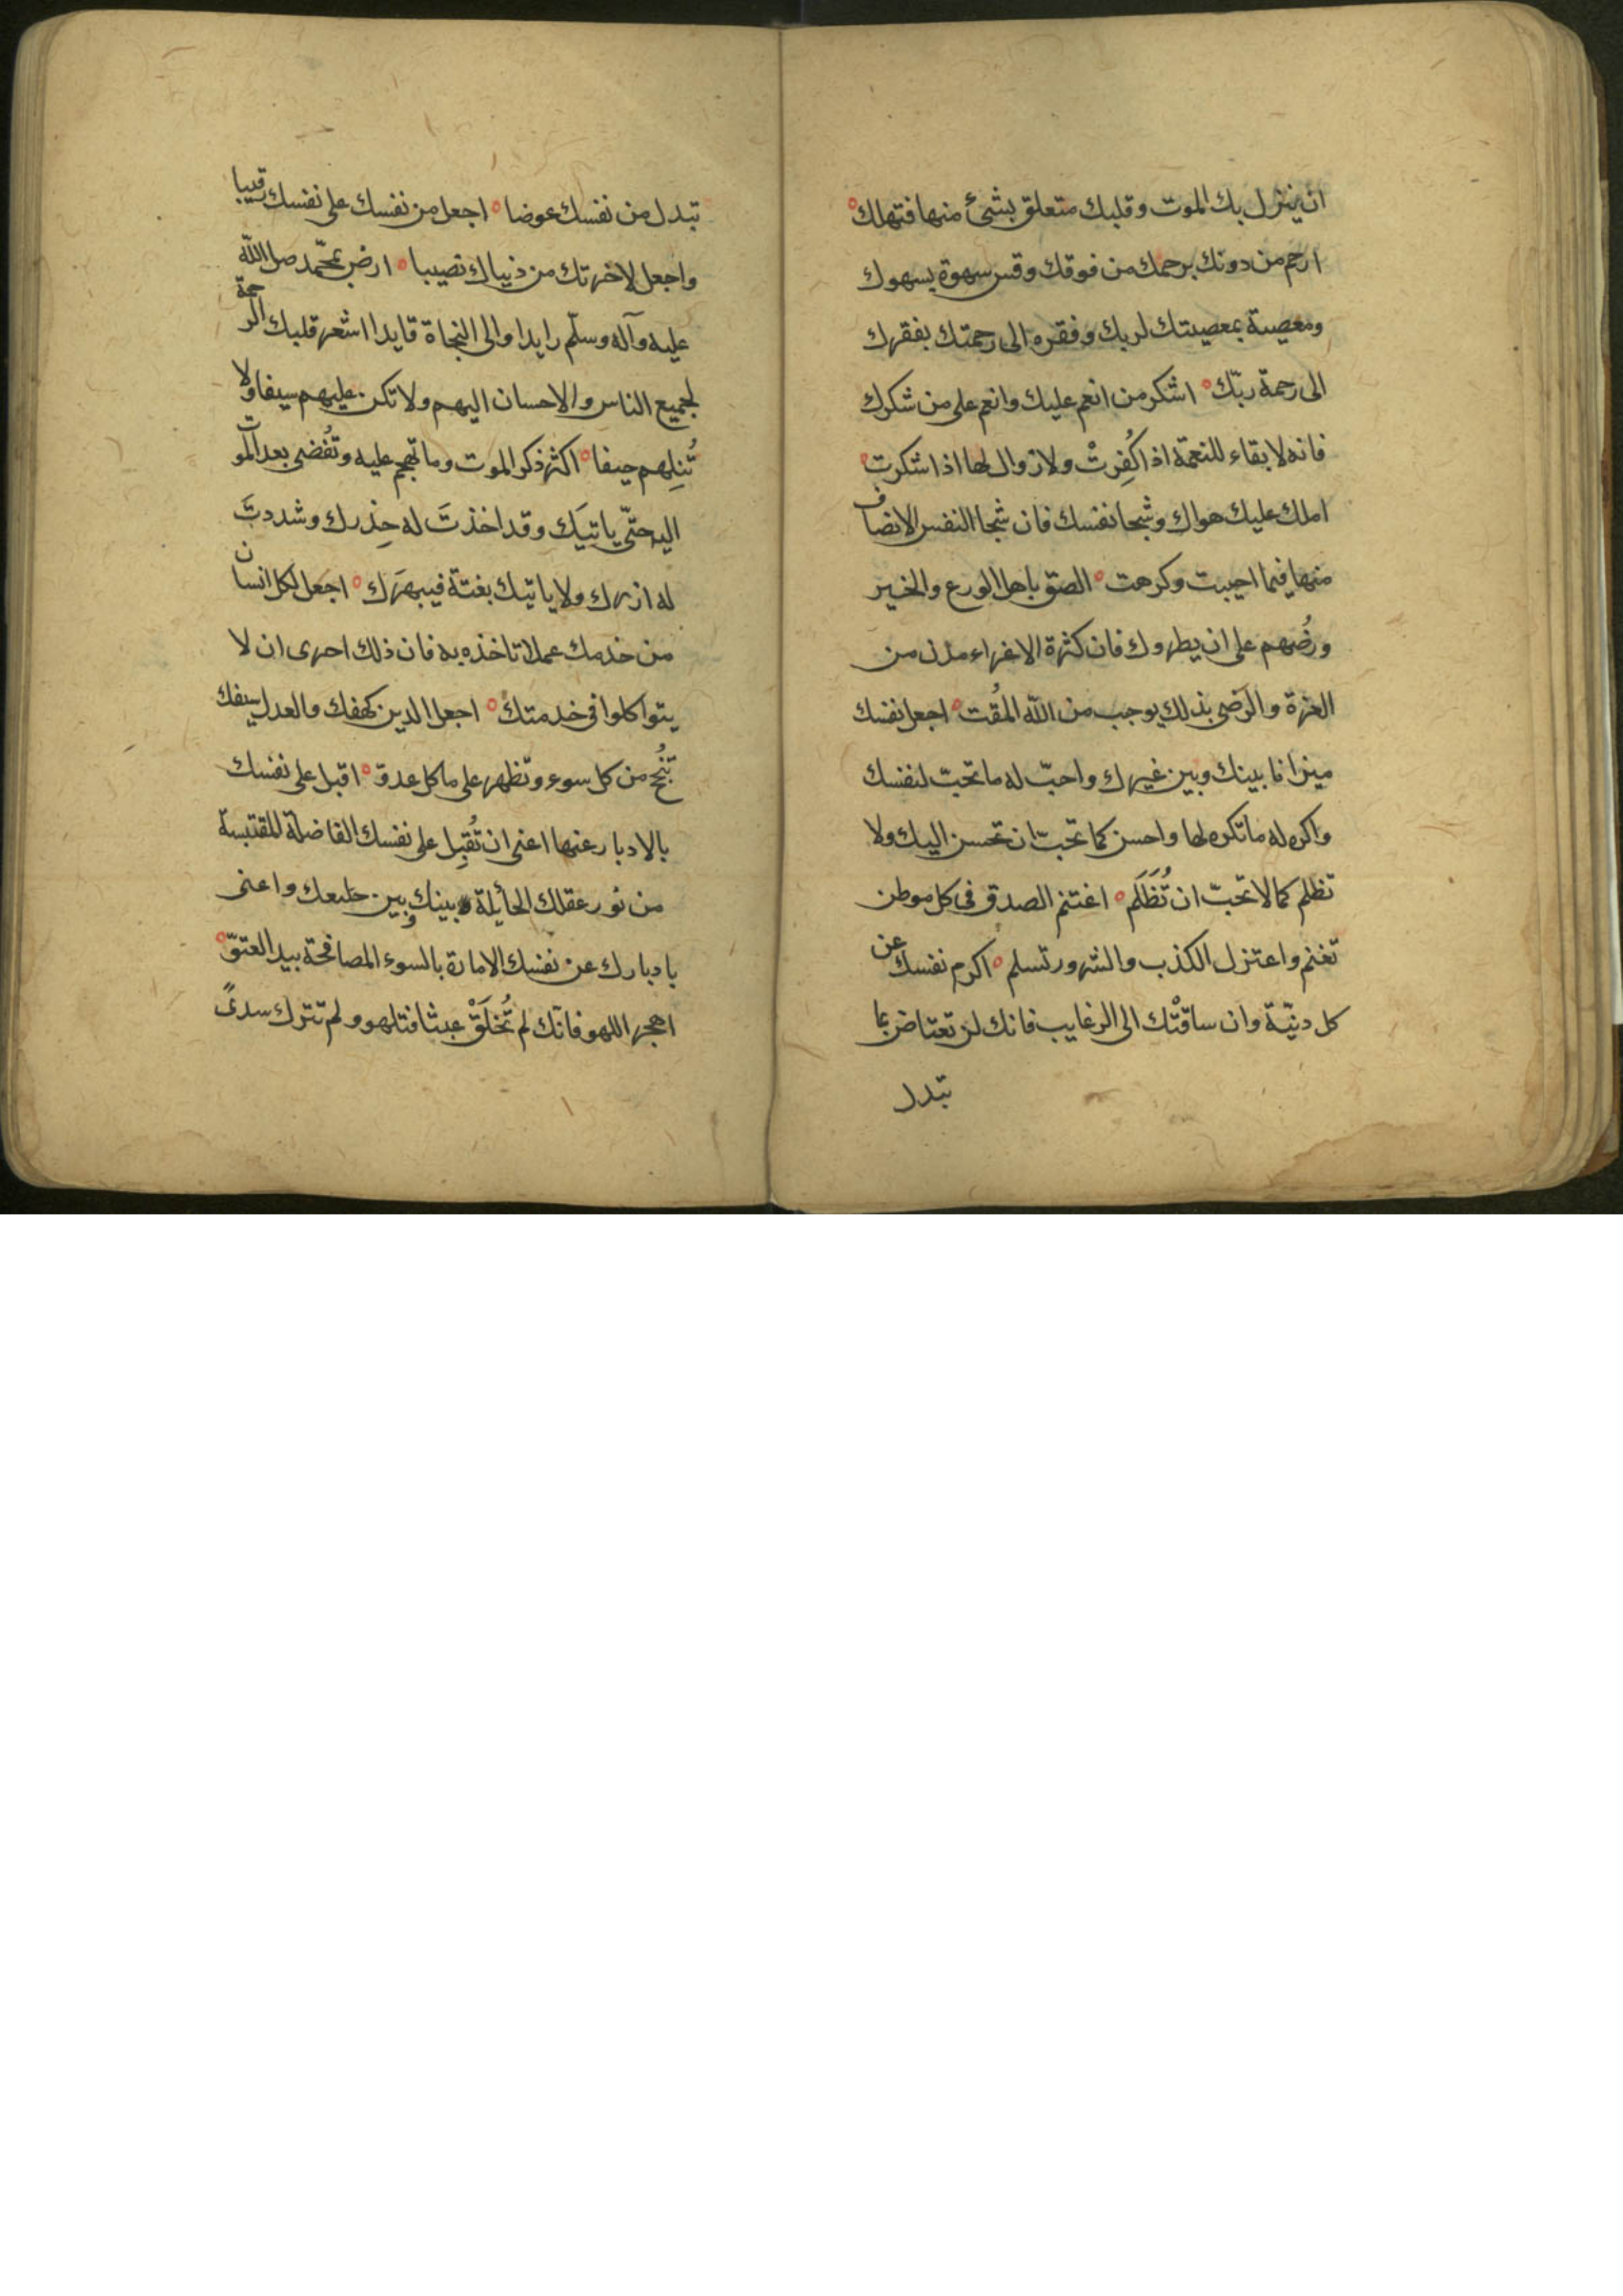 ان ينزل بك الموت وقلبك متعلق بشئ منها فتهلك
ارحم من دونك يرحمك من فوقك وقس سهوة بسهوك
ومعصية بمعصيتك لربك وفقره الى رحمتك بفقرك
الى رحمة ربّك ه اشكر من انعم عليك وانعم على من شكرك
فانه لا بقاء للنعمة اذا كُفِرتْ ولا زوال لها اذا شكرت
املك عليك هواك وشجا نفسك فان شجا النفس الانصاف
منها فيما احببت وكرهت ه الصق باهل الورع والخير
ورُضهم على ان يطروك فان كثرة الاغراء مدن من
العزة والرضى بذلك يوجب من الله المقت ه اجعل نفسك
ميزانا بينك وبين غيرك واحبّ له ما تحبّ لنفسك
واكره له ما تكره لها واحسن كما تحبّ ان تحسن اليك ولا
تظلم كما لا تحبّ ان تُظَلَم ه اغتنم الصدق في كل موطن
تغنم واعتزل الكذب والشرور تسلم ه اكرم نفسك عن
كل دنيّة وان ساقتْك الى الرغايب فانك لن تعتاض بما
تبدل
تبدل من نفسك عوضا ه اجعل من نفسك على نفسك رقيبا
واجعل لاخرتك من دنياك نصيبا ه ارض بمحّمد صلى اللّه
عليه وآله وسلّم رايدا والى النجاة قايدا اشعر قلبك الرحمة
لجميع الناس والاحسان اليهم ولا تكن عليهم سيفا ولا
تُنِلهم حيفا ه اكثر ذكر الموت وما تهجم عليه وتُفضى بعد الموت
اليه حتّى ياتيَك وقد اخذتَ له حِذرك وشددتَ
له ازرك ولا ياتيك بغتة فيبهرَك ه اجعل لكل انسان
من خدمك عملا تاخذه به فان ذلك احرى ان لا
يتواكلوا في خدمتك ه اجعل الدين كهفك والعدل سيفك
تَنْجُ من كل سوء وتظهر على ما كل عدوّ ه اقبل على نفسك
بالادبار عنها اعنى ان تُقبِل على نفسك الفاضلة المقتبسة
من نور عقلك الحائلة بينك وبين طبعك واعنى
بادبارك عن نفسك الامارة بالسوء المصافحة بيد العتوّ ه
اهجر اللهو فانّك لم تُخلَقْ عبثا فتلهو ولم تترك سدىً